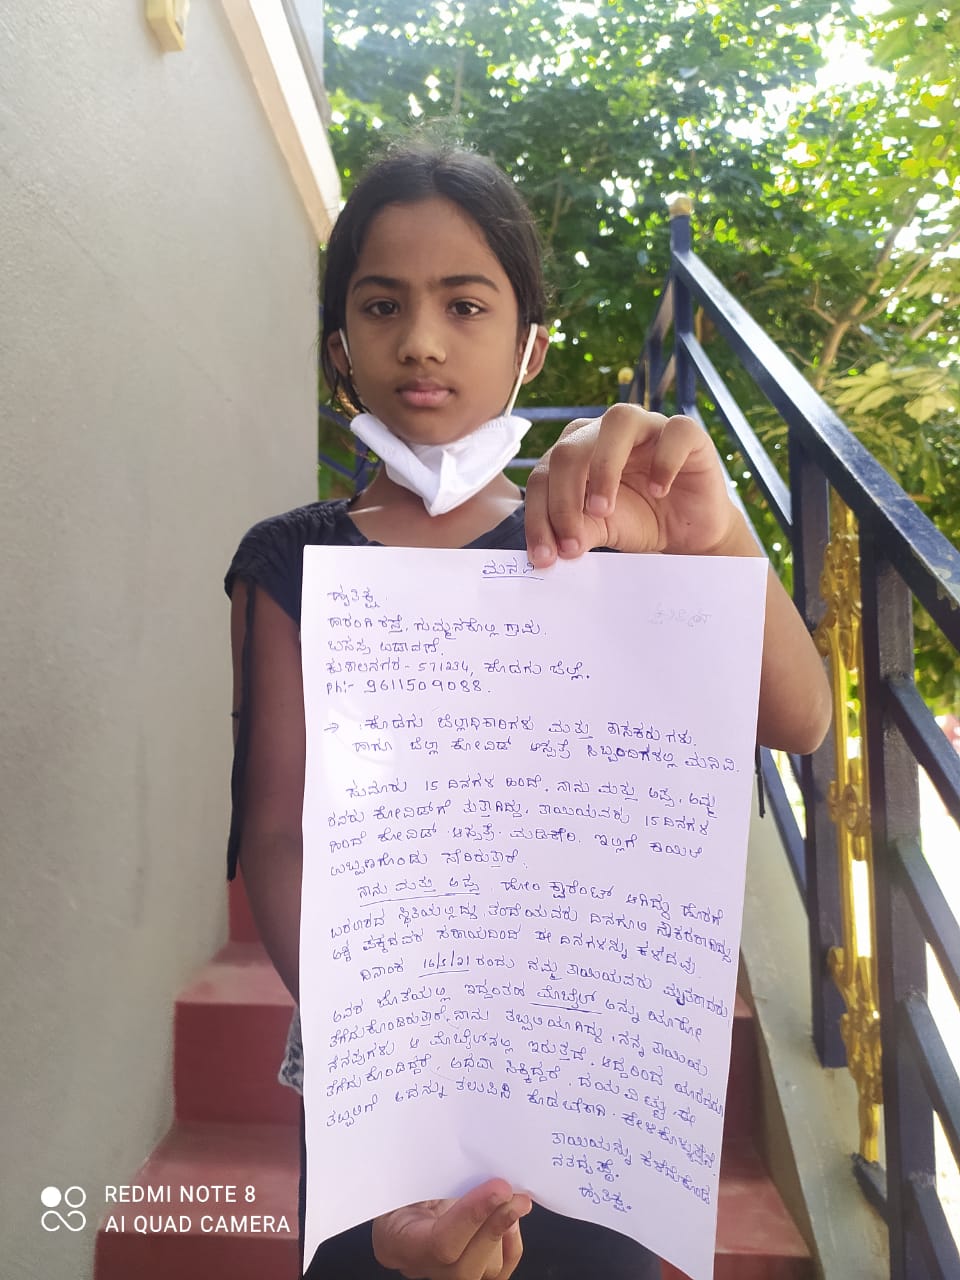 ಮನವಿ
ಹೃತಿಕ್ಷ
ಹಾರಂಗಿ ರಸ್ತೆ, ಗುಮ್ಮನಕೊಲ್ಲಿ ಗ್ರಾಮ.
ಬಸಪ್ಪ ಬಡಾವಣೆ.
ಕುಶಾಲನಗರ - 571234, ಕೊಡಗು ಜಿಲ್ಲೆ.
Ph:- 9611509088.
→ : ಕೊಡಗು ಜಿಲ್ಲಾಧಿಕಾರಿಗಳು ಮತ್ತು ಶಾಸಕರುಗಳು.
ಹಾಗೂ ಜಿಲ್ಲಾ ಕೋವಿಡ್ ಆಸ್ಪತ್ರೆ ಸಿಬ್ಬಂದಿಗಳಲ್ಲಿ ಮನವಿ.
ಸುಮಾರು 15 ದಿನಗಳ ಹಿಂದೆ, ನಾನು ಮತ್ತು ಅಪ್ಪ, ಅಮ್ಮ
ರವರು ಕೋವಿಡ್‌ಗೆ ತುತ್ತಾಗಿದ್ದು, ತಾಯಿಯವರು 15 ದಿನಗಳ
ಹಿಂದೆ ಕೋವಿಡ್ ಆಸ್ಪತ್ರೆ ಮಡಿಕೇರಿ, ಇಲ್ಲಿಗೆ ಕಾಯಿಲೆ
ಉಲ್ಬಣಗೊಂಡು ಸೇರಿರುತ್ತಾರೆ.
ನಾನು ಮತ್ತು ಅಪ್ಪ, ಹೋಂ ಕ್ವಾರೆಂಟ್ ಆಗಿದ್ದು ಹೊರಗೆ
ಬರಲಾರದ ಸ್ಥಿತಿಯಲ್ಲಿದ್ದು, ತಂದೆಯವರು ದಿನಗೂಲಿ ನೌಕರರಾಗಿದ್ದು
ಅಕ್ಕ ಪಕ್ಕದವರ ಸಹಾಯದಿಂದ ಈ ದಿನಗಳನ್ನು ಕಳೆದೆವು.
ದಿನಾಂಕ 16/5/21 ರಂದು ನಮ್ಮ ತಾಯಿಯವರು ಮೃತರಾದರು
ಅವರ ಜೊತೆಯಲ್ಲಿ ಇದ್ದಂತಹ ಮೊಬೈಲ್ ಅನ್ನು ಯಾರೋ
ತೆಗೆದುಕೊಂಡಿರುತ್ತಾರೆ, ನಾನು ತಬ್ಬಲಿಯಾಗಿದ್ದು, ನನ್ನ ತಾಯಿಯ
ನೆನಪುಗಳು ಆ ಮೊಬೈಲ್‌ನಲ್ಲಿ ಇರುತ್ತದೆ. ಆದ್ದರಿಂದ ಯಾರಾದರೂ
ತೆಗೆದುಕೊಂಡಿದ್ದರೆ, ಅಥವಾ ಸಿಕ್ಕಿದ್ದರೆ, ದಯವಿಟ್ಟು ಈ
ತಬ್ಬಲಿಗೆ ಅದನ್ನು ತಲುಪಿಸಿ ಕೊಡಬೇಕಾಗಿ ಕೇಳಿಕೊಳ್ಳುತ್ತೇನೆ.
ತಾಯಿಯನ್ನು ಕಳೆದುಕೊಂಡ
ನತದೃಷ್ಟೆ.
ಹೃತಿಕ್ಷ.
REDMI NOTE 8
AI QUAD CAMERA